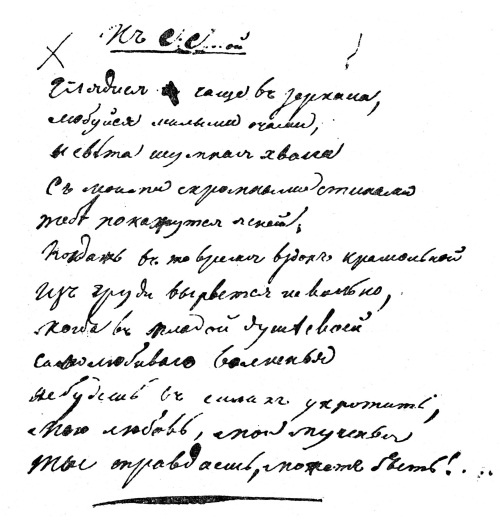 Къ С. С....ой
Глядися чаще въ зеркала,
любуйся милыми очами,
и свѣта шумная хвала
Съ моими скромными стихами
тебѣ покажутся яснѣй;
Когдажъ въ то время вздохъ крамольной
Изъ груди вырвется невольно,
когда въ младой душѣ своей
самолюбиваго волненья
не будешь въ силахъ укротить,
Мою любовь, мои мученья
Ты оправдаешь, можетъ быть! . . .